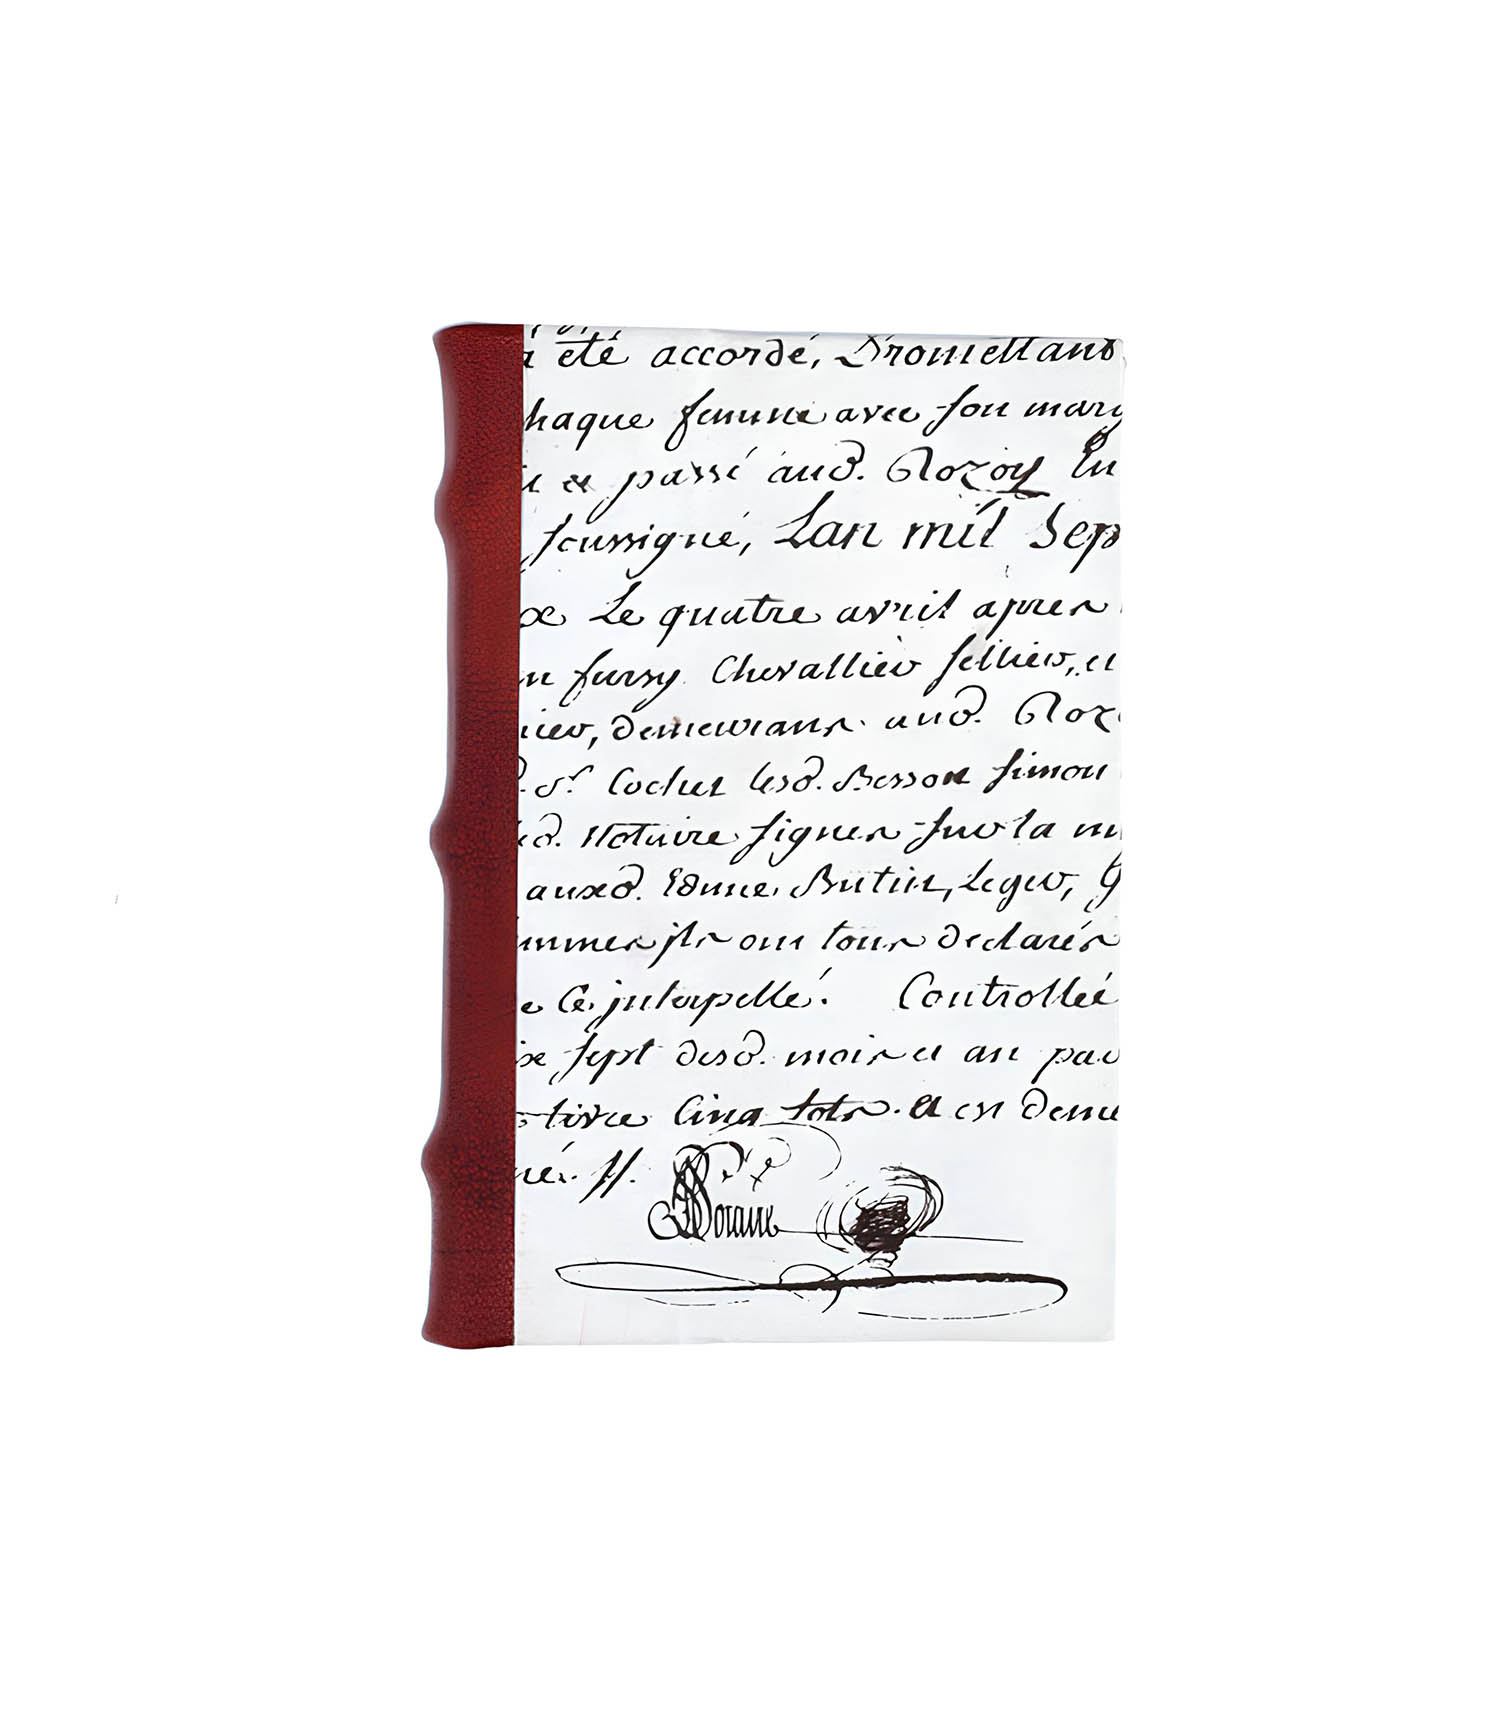 été accordé, Promettant
haque femme avec son mary
a passé aud. Rozoy En
soussigné, Lan mil Sep
Le quatre avril apres
fursy Chevallier sellier, et
demeurans aud. Roz
d. Sr. Cochet lesd. Besson Simon
d. Notaire signer sur la mi
auxd. Edme Butin, Leger, G
mmes ils ont tous declarés
e Ce interpellé. Controllée
ix sept desd. mois et an par
livre Cinq sols. et est deme